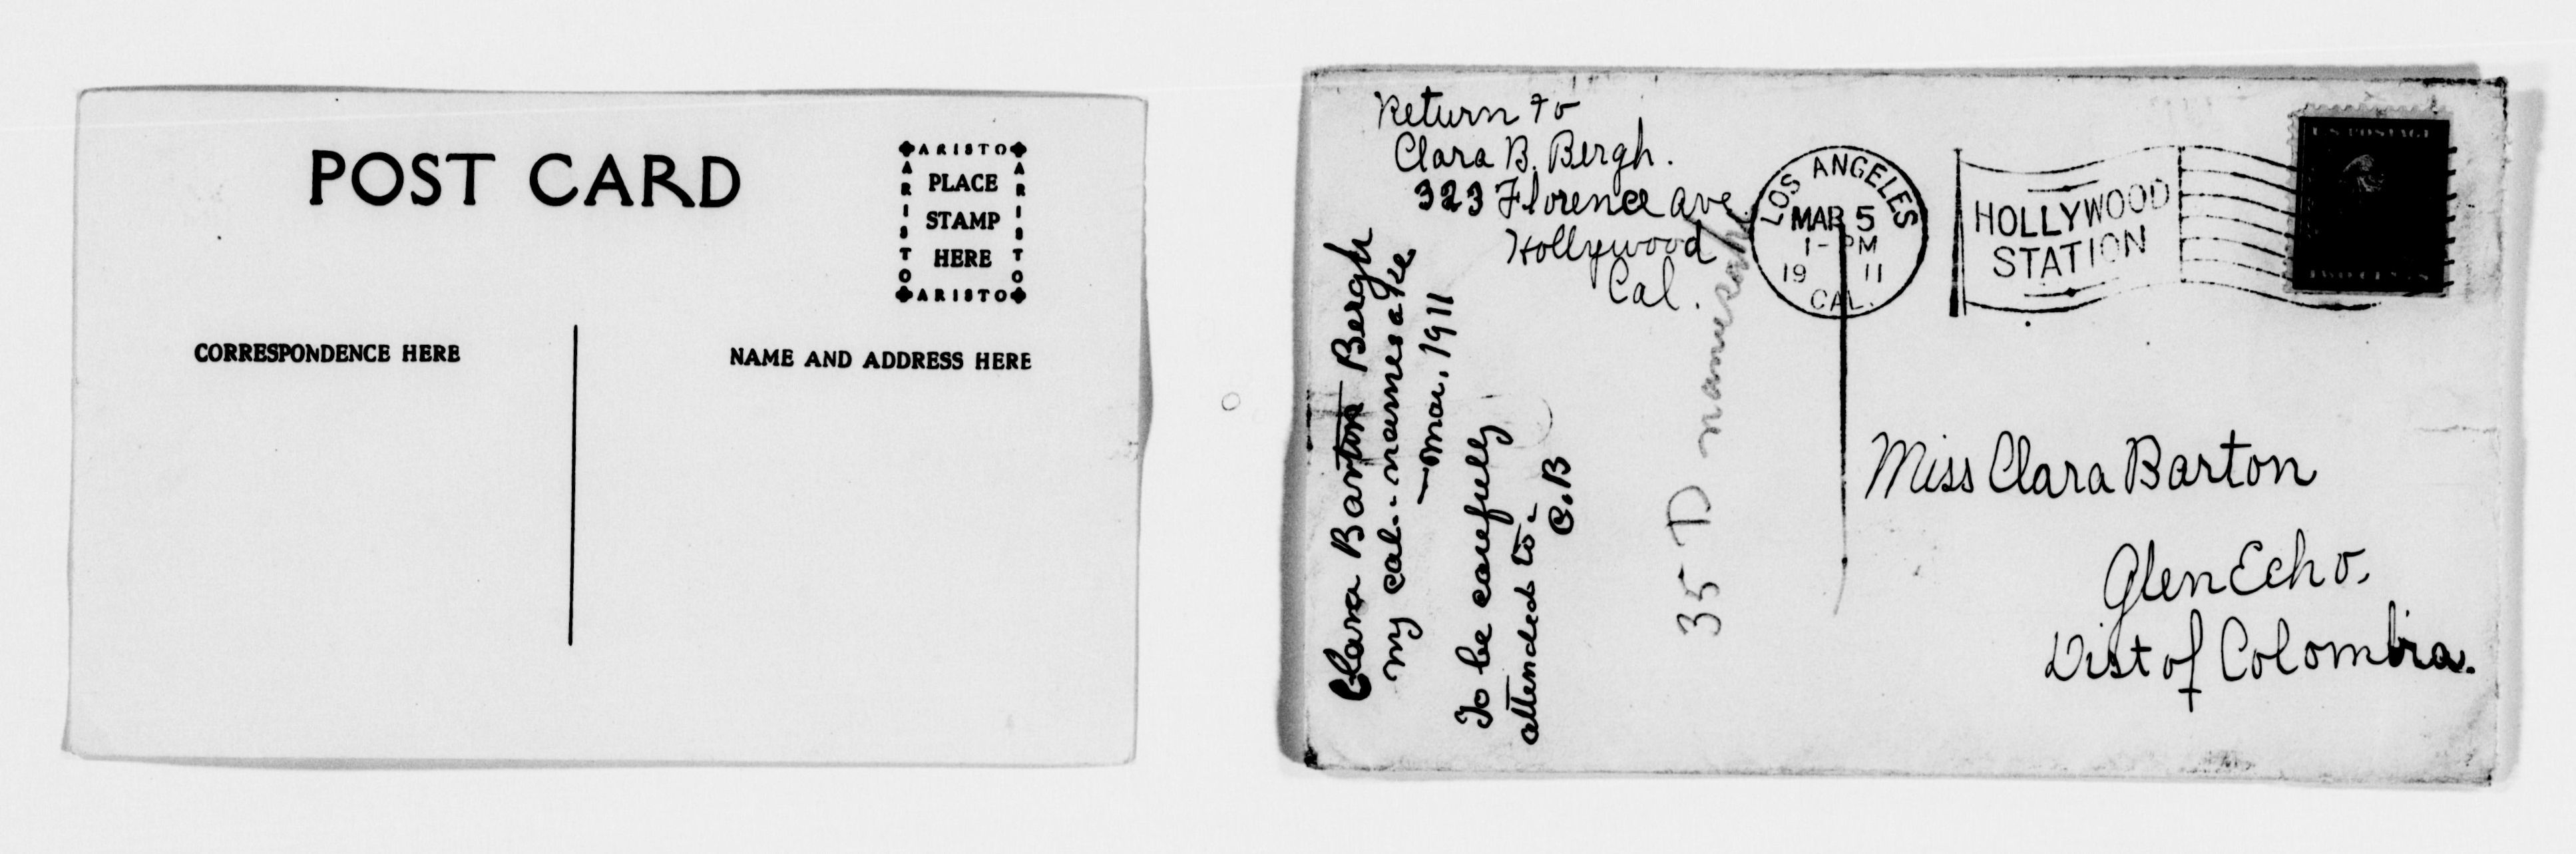 POST CARD
ARISTO
ARISTO
ARISTO
ARISTO
PLACE
STAMP
HERE
CORRESPONDENCE HERE
NAME AND ADDRESS HERE
Return to
Clara B. Bergh.
323 Florence Ave
Hollywood
Cal.
LOS ANGELES
MAR 5
1-PM
19 11
CAL.
HOLLYWOOD
STATION
U.S. POSTAGE
TWO CENTS
Clara Barton Bergh
my cal-- namesake
—Mar, 1911
To be carefully
attended to-
C.B
35 D namesake
Miss Clara Barton
Glen Echo,
Dist of Colombia.